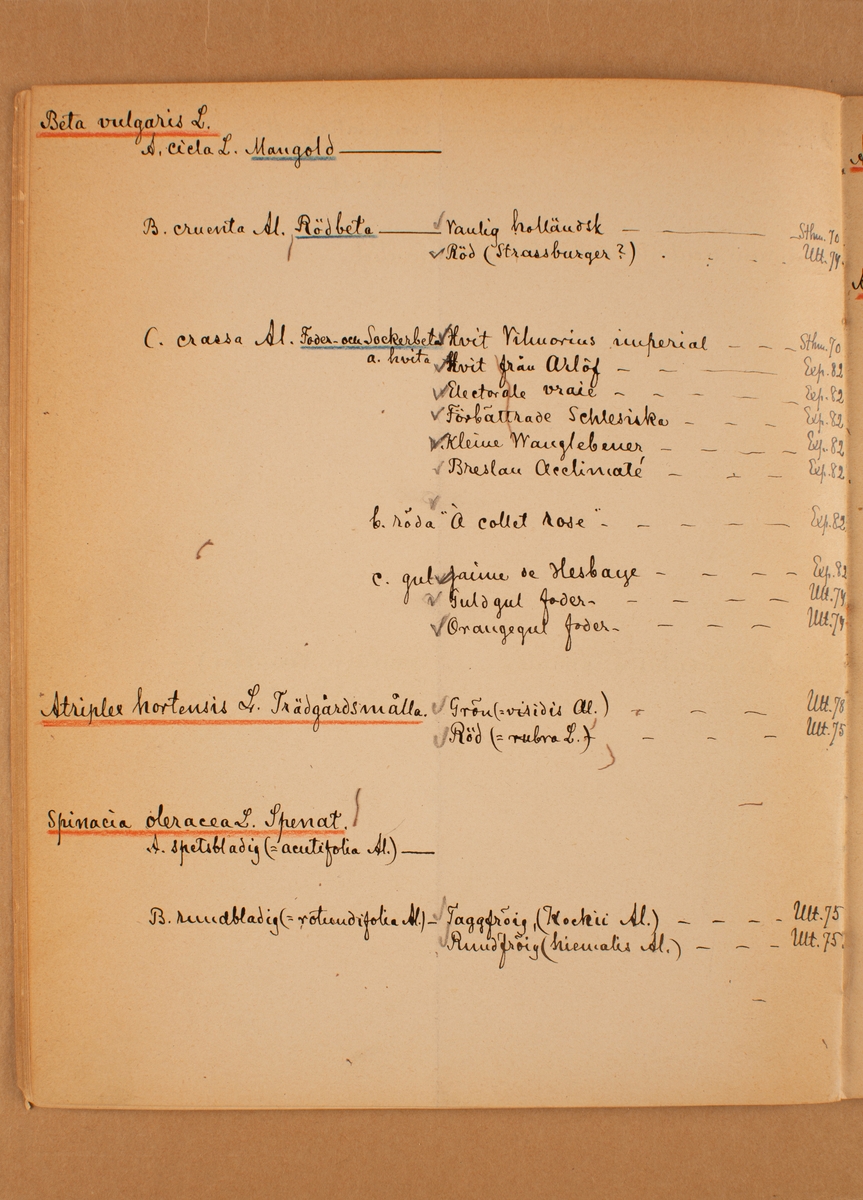 Beta vulgaris L.
A. cicla L. Mangold
B. cruenta Al. Rödbeta Vanlig holländsk Sthm. 70
Röd (Strassburger?) Utt. 74
C. crassa Al. Foder- och Sockerbeta Hvit Vilmorins imperial Sthm. 70
a. hvita Hvit från Arlöf Exp. 82
Electorale vraie Exp. 82
Förbättrade Schlesiska Exp. 82
Kleine Wanglebener Exp. 82
Breslau Acclimaté Exp. 82
b. röda "À collet rose" Exp. 82
c. gul Jaune de Hesbaye Exp. 82
Guldgul foder- Utt. 74
Orangegul foder- Utt. 74
Atriplex hortensis L. Trädgårdsmålla. Grön (=viridis Al.) Utt. 78
Röd (=rubra L.) Utt. 75
Spinacia oleracea L. Spenat.
A. spetsbladig (=acutifolia Al.)
B. rundbladig (=rotundifolia Al.) Taggfröig, (Kockii Al.) Utt. 75
Rundfröig (hiemalis Al.) Utt. 75.